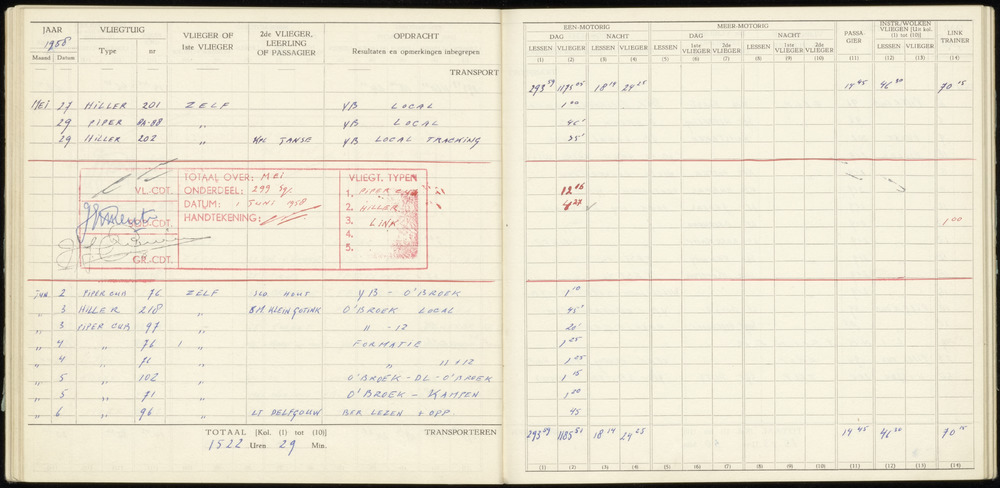 JAAR VLIEGTUIG VLIEGER OF 1ste VLIEGER 2de VLIEGER, LEERLING OF PASSAGIER OPDRACHT
1958 Type nr Resultaten en opmerkingen inbegrepen
Maand Datum
TRANSPORT
MEI 27 HILLER 201 ZELF YB LOCAL
29 PIPER PA-88 " YB LOCAL
29 HILLER 202 " JANSE YB LOCAL TRACKING
VL.CDT.
GR.CDT.
TOTAAL OVER: MEI
ONDERDEEL: 299 Sq.
DATUM: 1 JUNI 1958
HANDTEKENING:
VLIEGT. TYPEN
1. PIPER CUB
2. HILLER
3. LINK
4.
5.
JUN. 2 PIPER CUB 76 ZELF HOUT YB - O'BROEK
" 3 HILLER 218 " SM KLEIN GOTINK O'BROEK LOCAL
" 3 PIPER CUB 97 " " - 12
" 4 " 76 " FORMATIE
" 4 " 71 " " 11+12
" 5 102 O'BROEK - DL - O'BROEK
" 5 " 71 " O'BROEK - KAMPEN
" 6 " 96 " LT DELFGOUW BER LEZEN + OPP
TOTAAL [Kol. (1) tot (10)] TRANSPORTEREN
1522 Uren 29 Min.
EEN-MOTORIG MEER-MOTORIG PASSA-GIER INSTR./WOLKEN VLIEGEN [Uit kol. (1) tot (10)] LINK TRAINER
DAG NACHT DAG NACHT
LESSEN VLIEGER LESSEN VLIEGER LESSEN 1ste VLIEGER 2de VLIEGER LESSEN 1ste VLIEGER 2de VLIEGER LESSEN VLIEGER
(1) (2) (3) (4) (5) (6) (7) (8) (9) (10) (11) (12) (13) (14)
293 59 1175 05 18 14 24 25 14 45 46 30 70 15
1 00
45'
35'
12 05
4 27
1 00
1 10
45'
20'
1 25
1 05
1 15
1 00
45
293 59 1185 51 18 14 24 25 14 45 46 30 70 15
(1) (2) (3) (4) (5) (6) (7) (8) (9) (10) (11) (12) (13) (14)